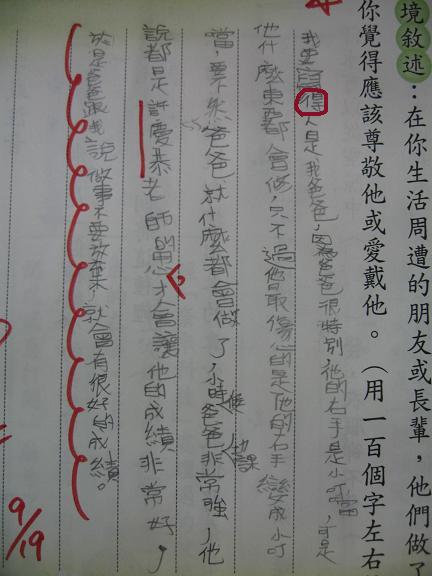 境敘述：在你生活周遭的朋友或長輩，他們做了
你覺得應該尊敬他或愛戴他。（用一百個字左右
我要寫得人是我爸爸，因為爸爸很特別，他的右手是小叮噹，可是
他什麼東西都會修，只不過他最傷心的是他的右手變成小叮
噹，要不然爸爸就什麼都會做了，小時候爸爸功課非常強，他
說都是許慶恭老師的恩才會讓他的成績非常好，
於是爸爸跟我說做事不要放棄，就會有很好的成績。
9/19